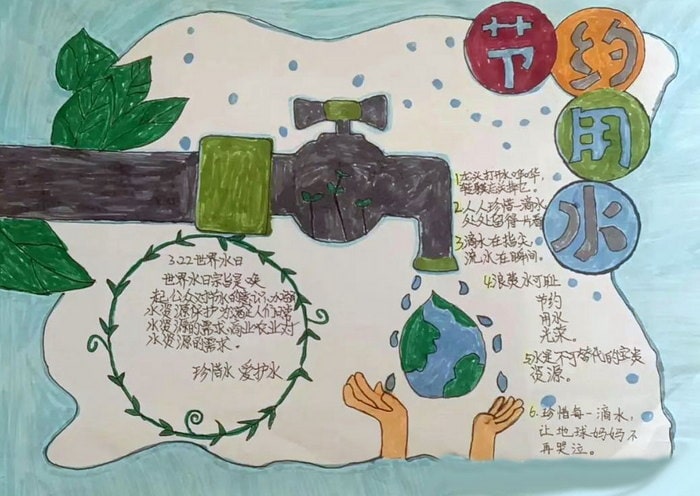 节约用水
1.龙头打开水哗哗,
2.人人珍惜一滴水
处处留得一片春
3.滴水在指尖,
流水在瞬间。
4.浪费水可耻
节约
用水
光荣。
5.水是不可替代的宝贵
资源。
6.珍惜每一滴水,
让地球妈妈不
再哭泣。
3.22世界水日
世界水日宗旨是唤
起公众对节水的意识,加强
水资源保护为满足人们日常
水资源的需求、商业农业为一
水资源的需求。
珍惜水 爱护水